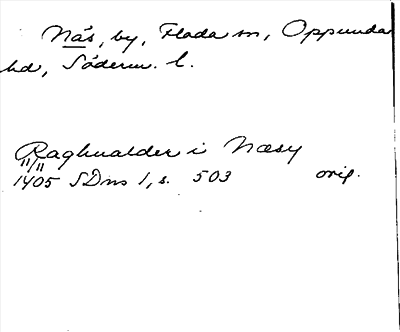 Näs, by, Floda sn, Oppunda
hd, Söderm. l.
Raghualder i Næsy
11/11
1405 SDns 1, s. 503 orig.